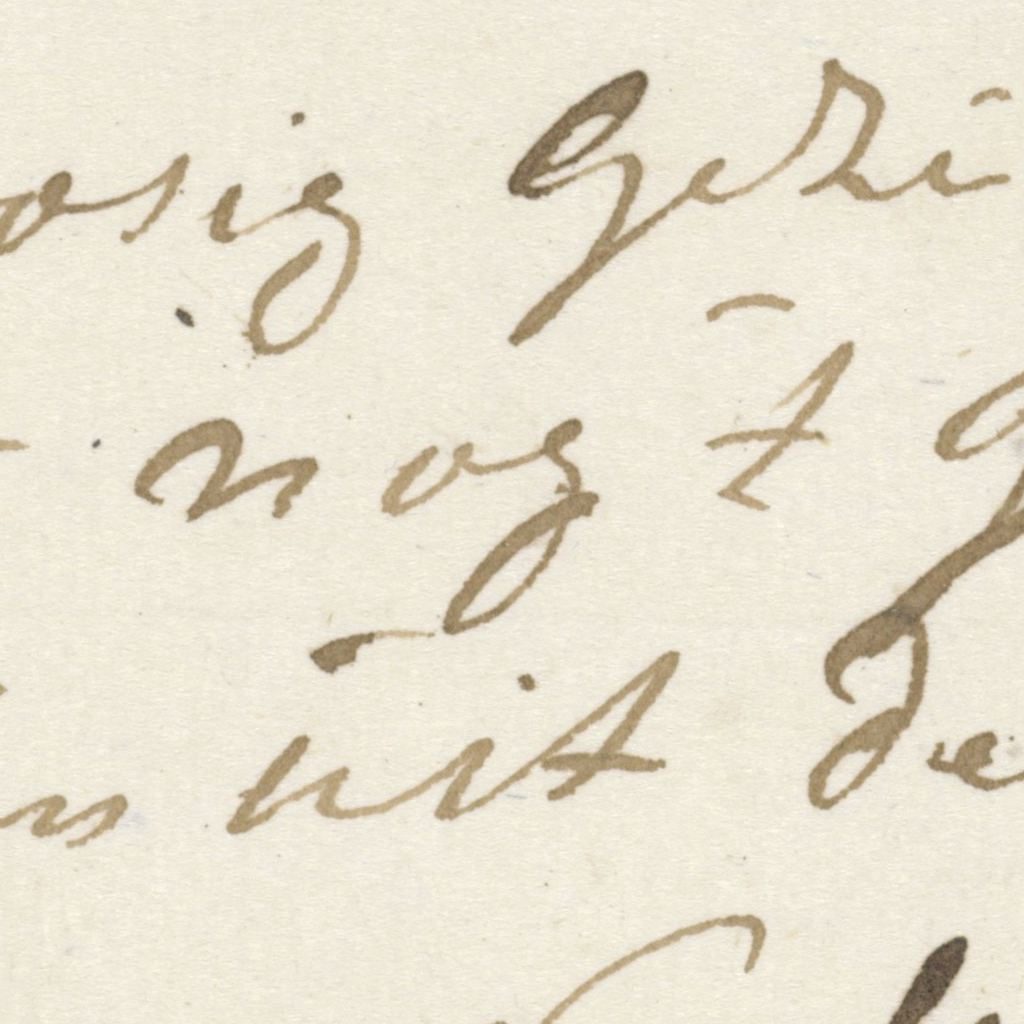 osig gezi
nog t g
n uit de